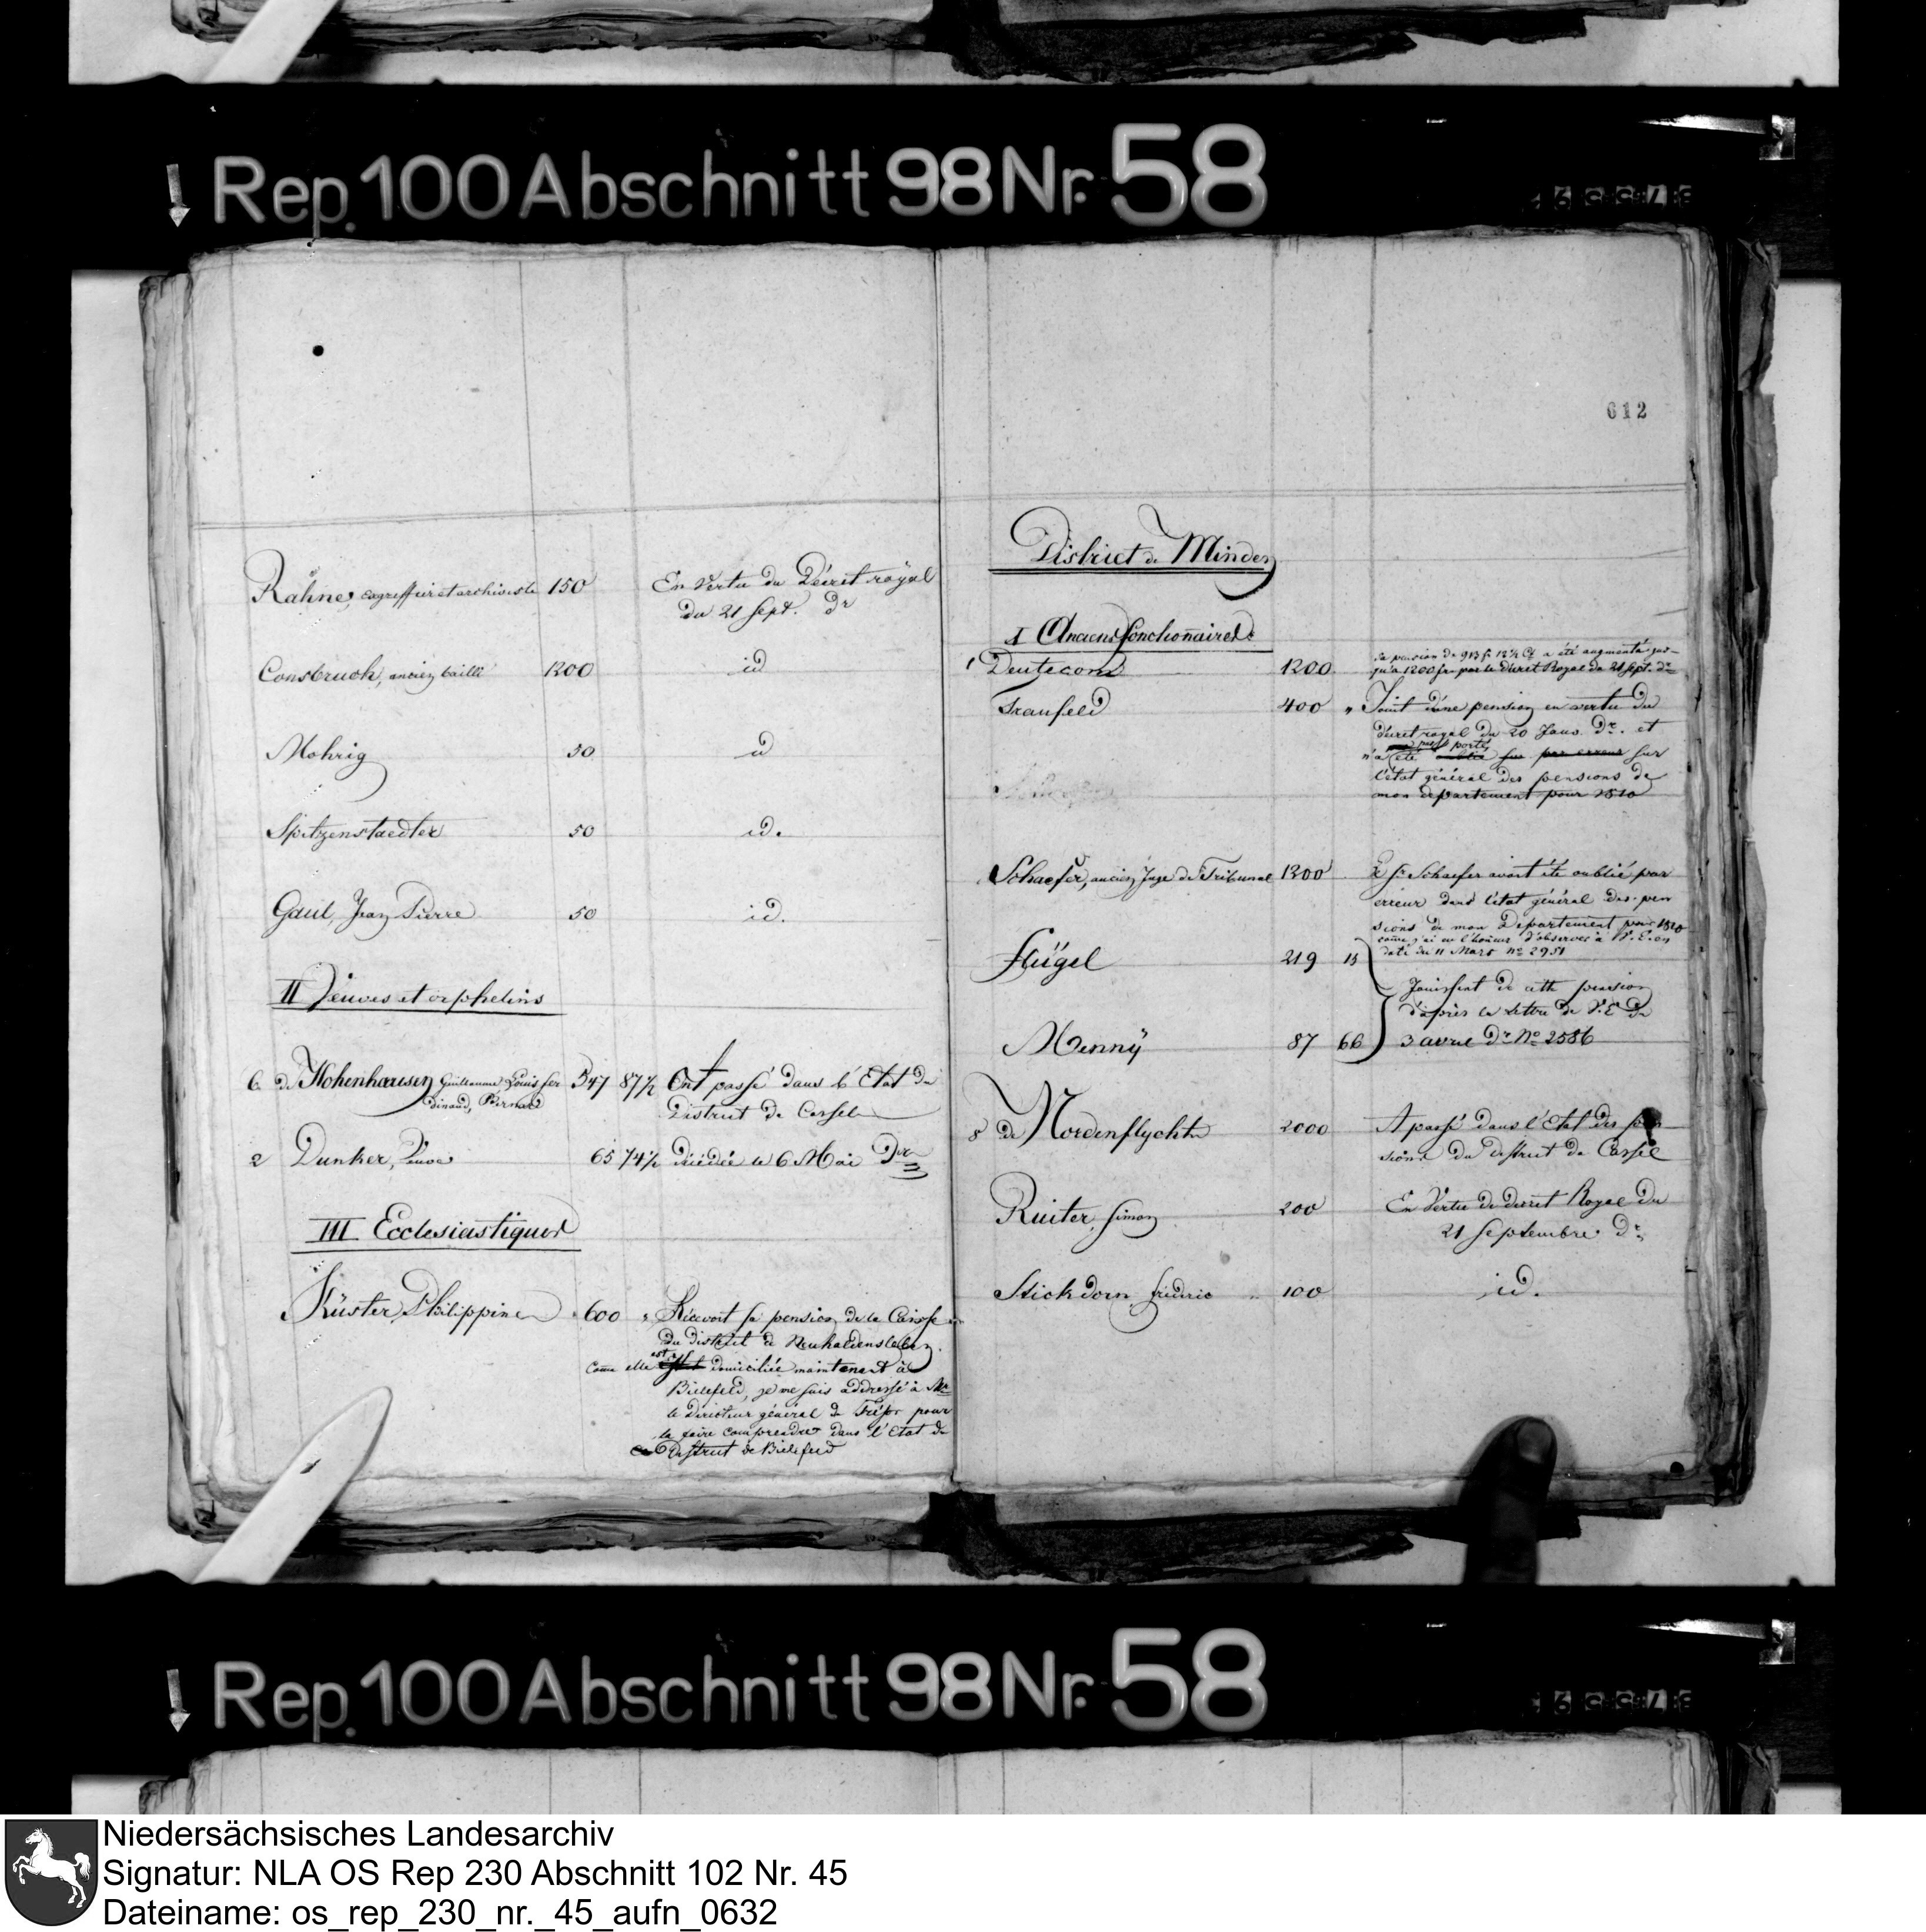 Rep. 100 Abschnitt 98 Nr. 58
Rahne, exgreffier et archiviste 150 En Vertu du Décret royal
du 21 Sept. dr
Consbruch, ancien bailli 1200 id
Mohrig 50 id
Spitzenstaedter 50 id.
Gaul, Jean Pierre 50 id.
II Veuves et orphelins
6 de Hohenhausen Guillaume Louis fer 547 87½ Ont passé dans l'Etat du
dinand, Bernard District de Cassel
2 Dunker, Veuve 65 74½ décédée le 6 Mai dr
III Ecclesiastiques
Küster, Philippine 600 " Recevoit sa pension de la Caisse
du district de Neuhaldensleben.
Come elle est domiciliée maintenant à
Bielefeld, je me suis addressé à Mr
le Directeur général du Trésor pour
la faire comprendre dans l'Etat du
District de Bielefeld
612
District de Minden
I Anciens fonctionnaires
1 Deutecom 1200 Sa pension de 913 f. 12½ Cs a été augmenté jus-
qu'à 1200 fr. par le décret Royal du 21 Sept. dr
Tranfeld 400 " Jouit d'une pension en vertu du
décret royal du 20 Janv. dr. et
n'a pas été porté sur par erreur sur
l'état général des pensions de
mon département pour 1810
Schaefer, ancien Juge de Tribunal 1200 Le Sr Schaefer avoit été oublié par
erreur dans l'état général des pen
sions de mon Département pour 1810
come j'ai eu l'honneur d'observer à V. E. en
date du 11 Mars No 2951
Flügel 219 15
Jouissent de cette pension
d'après la lettre de V. E. du
Menny 87 66 3 avril dr No 2586
8 de Nordenflycht 2000 A passé dans l'Etat des pen
sions du district de Cassel
Ruiter, Simon 200 En Vertu de decret Royal du
21 Septembre dr.
Stickdorn, frédéric " 100 id.
Rep. 100 Abschnitt 98 Nr. 58
Niedersächsisches Landesarchiv
Signatur: NLA OS Rep 230 Abschnitt 102 Nr. 45
Dateiname: os_rep_230_nr._45_aufn_0632